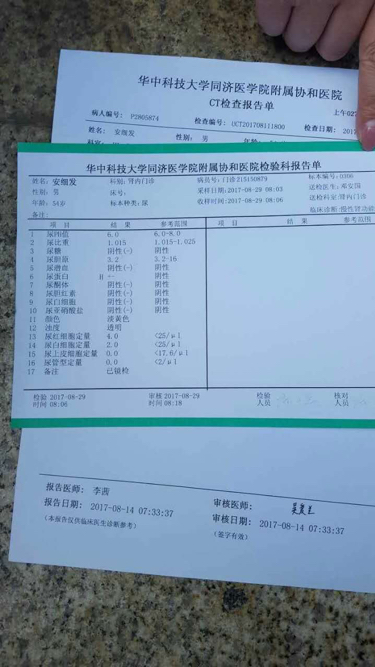 华中科技大学同济医学院附属协和医院
CT检查报告单
上午02
病人编号: P2805874 检查编号: UCT201708111800 检查日期: 201
姓名: 安细发 性别: 男
华中科技大学同济医学院附属协和医院检验科报告单
姓名:安细发 科别:肾内门诊 病员号:门诊215150879 标本编号:0306
性别:男 床号: 采样日期:2017-08-29 08:03 送检医生:郑安国
年龄:54岁 标本种类:尿 收样时间:2017-08-29 08:06 送检科室:肾内门诊
备注: 临床诊断:慢性肾功能
项 目 结 果 参考范围 项 目 结 果 参考范围
1 尿pH值 6.0 6.0-8.0
2 尿比重 1.015 1.015-1.025
3 尿糖 阴性(-) 阴性
4 尿胆原 3.2 3.2-16
5 尿潜血 阴性(-) 阴性
6 尿蛋白 H 阴性
7 尿酮体 阴性(-) 阴性
8 尿胆红素 阴性(-) 阴性
9 尿白细胞 阴性(-) 阴性
10 尿亚硝酸盐 阴性(-) 阴性
11 颜色 淡黄色
12 浊度 透明
13 尿红细胞定量 4.0 <25/μl
14 尿白细胞定量 2.0 <25/μl
15 尿上皮细胞定量 0.0 <17.6/μl
16 尿管型定量 0.0 <2/μl
17 备注 已镜检
检验 2017-08-29 审核 2017-08-29 检验 核对
时间 08:06 时间 08:18 人员 人员
报告医师: 李茜 审核医师:
报告日期: 2017-08-14 07:33:37 审核日期: 2017-08-14 07:33:37
(本报告仅供临床医生诊断参考) (签字有效)